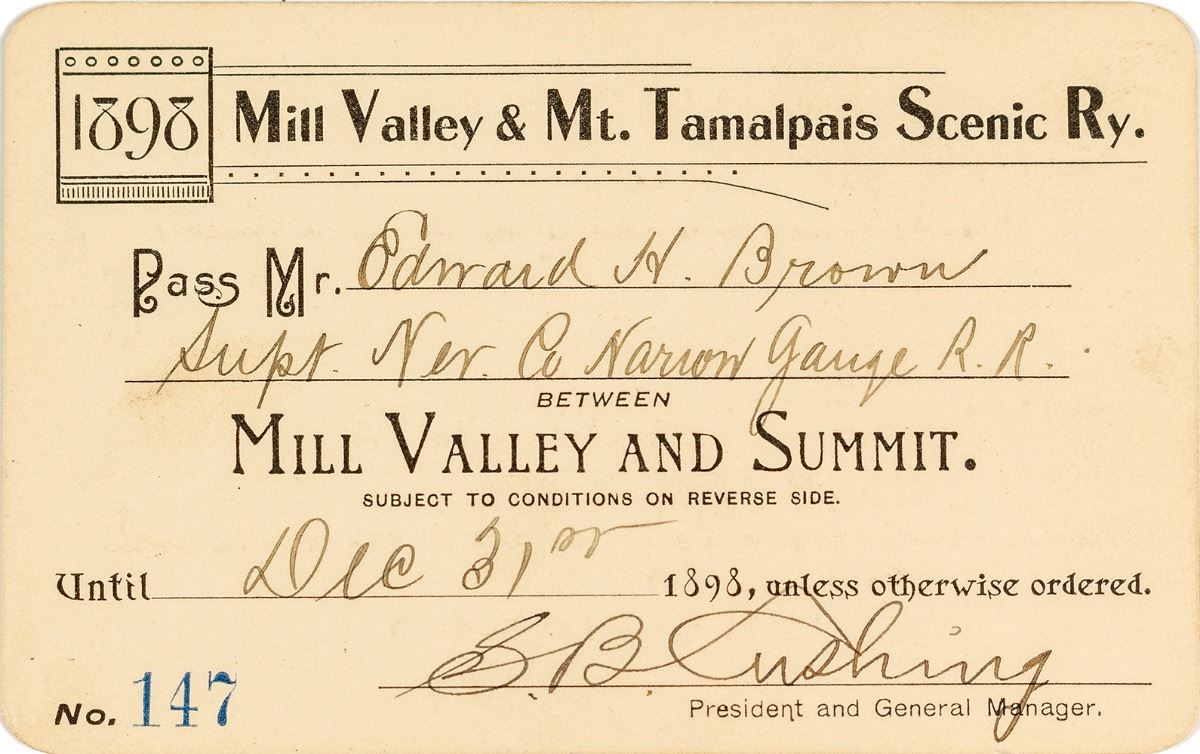 1898
Mill Valley & Mt. Tamalpais Scenic Ry.
Pass Mr. Edward H. Brown
Supt. Nev. Co Narrow Gauge R. R.
BETWEEN
MILL VALLEY AND SUMMIT.
SUBJECT TO CONDITIONS ON REVERSE SIDE.
Until Dec 31st 1898, unless otherwise ordered.
S. B. Cushing
President and General Manager.
No. 147